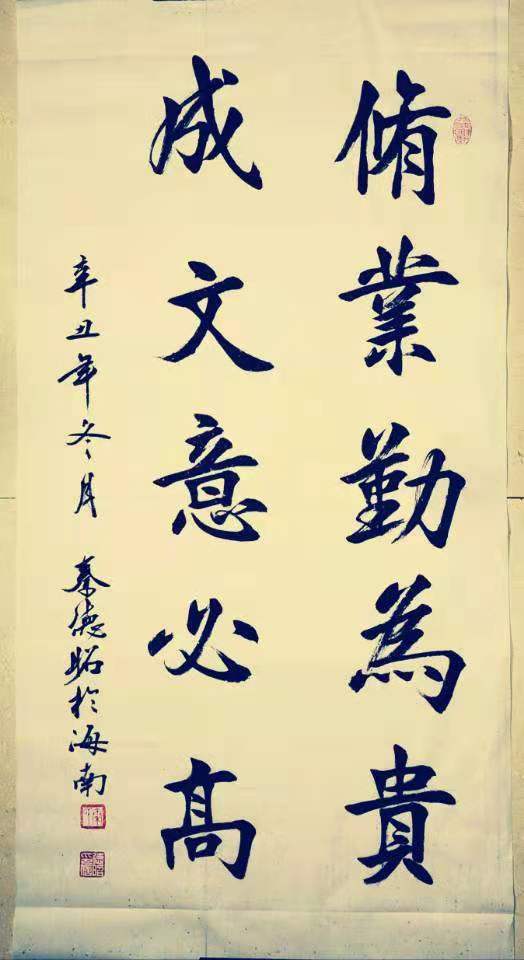 脩業勤為貴
成文意必高
辛丑年冬月 秦德昭於海南